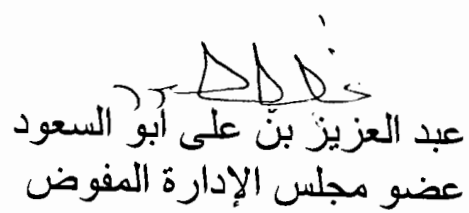 عبد العزيز بن على أبو السعود
عضو مجلس الإدارة المفوض